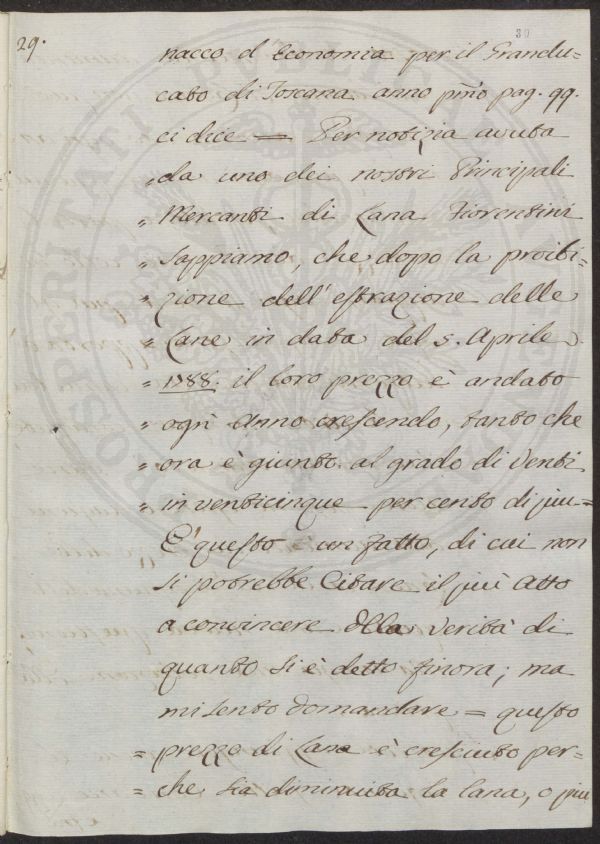 29.
30
nacco d'Economia per il Grandu-
cato di Toscana anno pmo pag. 99.
ci dice = Per notizia avuta
" da uno dei nostri Principali
" Mercanti di Lana Fiorentini
" sappiamo, che dopo la proibi-
" zione dell'estrazione delle
" Lane in data del 5. Aprile
" 1788. il loro prezzo è andato
" ogni Anno crescendo, tanto che
" ora è giunto al grado di Venti
" in venticinque per cento di piu=
E' questo è un fatto, di cui non
si potrebbe Citare il piu atto
a convincere della verità di
quanto si è detto finora; ma
mi sento domandare = questo
= prezzo di Lana è cresciuto per-
= che sia diminuita la lana, o piu
PROSPERITATI PUBLICAE